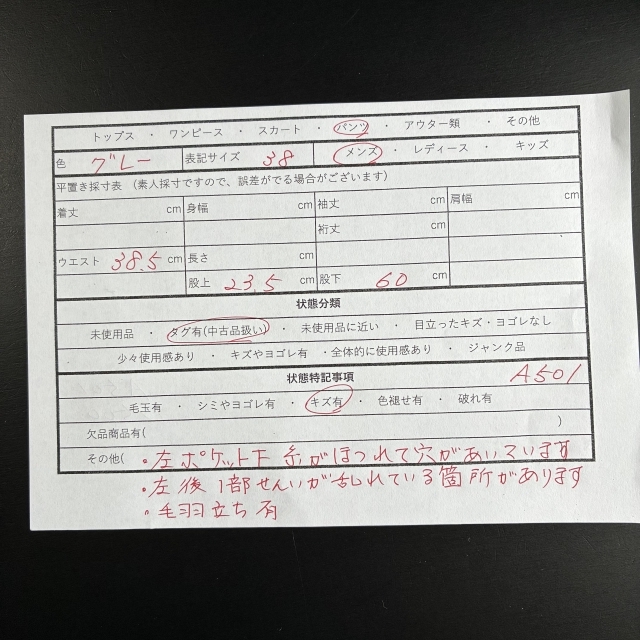 トップス ・ ワンピース ・ スカート ・ パンツ ・ アウター類 ・ その他
色 グレー 表記サイズ 38 メンズ ・ レディース ・ キッズ
平置き採寸表 (素人採寸ですので、誤差がでる場合がございます)
着丈 cm 身幅 cm 袖丈 cm 肩幅 cm
裄丈 cm
ウエスト 38.5 cm 長さ cm
股上 23.5 cm 股下 60 cm
状態分類
未使用品 ・ タグ有(中古品扱い) ・ 未使用品に近い ・ 目立ったキズ・ヨゴレなし
少々使用感あり ・ キズやヨゴレ有 ・全体的に使用感あり ・ ジャンク品
状態特記事項 A501
毛玉有 ・ シミやヨゴレ有 ・ キズ有 ・ 色褪せ有 ・ 破れ有
欠品商品有( )
その他( ・左ポケット下 糸がほつれて穴があいています
・左後1部せんいが乱れている箇所があります
・毛羽立ち有